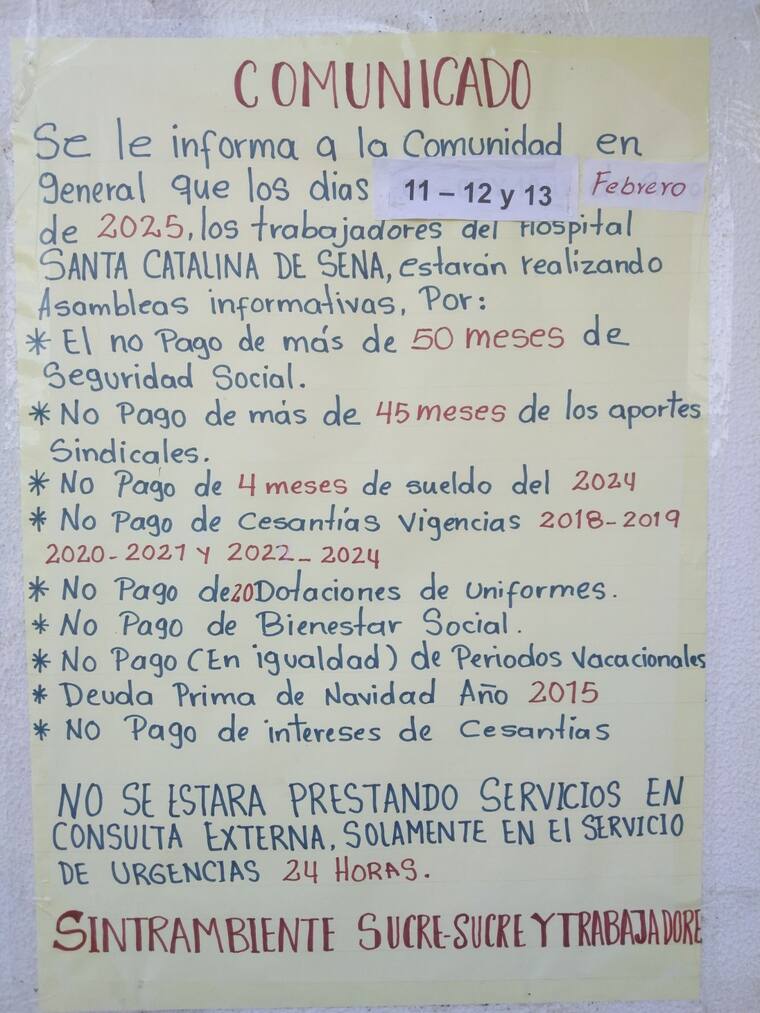 COMUNICADO
Se le informa a la Comunidad en
general que los dias 11 – 12 y 13 Febrero
de 2025, los trabajadores del Hospital
SANTA CATALINA DE SENA, estarán realizando
Asambleas informativas, Por:
* El no Pago de más de 50 meses de
Seguridad Social.
* No Pago de más de 45 meses de los aportes
Sindicales.
* No Pago de 4 meses de sueldo del 2024
* No Pago de Cesantías Vigencias 2018-2019
2020-2021 Y 2022-2024
* No Pago de 20 Dotaciones de Uniformes.
* No Pago de Bienestar Social.
* No Pago (En igualdad) de Periodos Vacacionales
* Deuda Prima de Navidad Año 2015
* No Pago de intereses de Cesantías
NO SE ESTARA PRESTANDO SERVICIOS EN
CONSULTA EXTERNA, SOLAMENTE EN El SERVICIO
DE URGENCIAS 24 HORAS.
SINTRAMBIENTE SUCRE-SUCRE Y TRABAJADORE